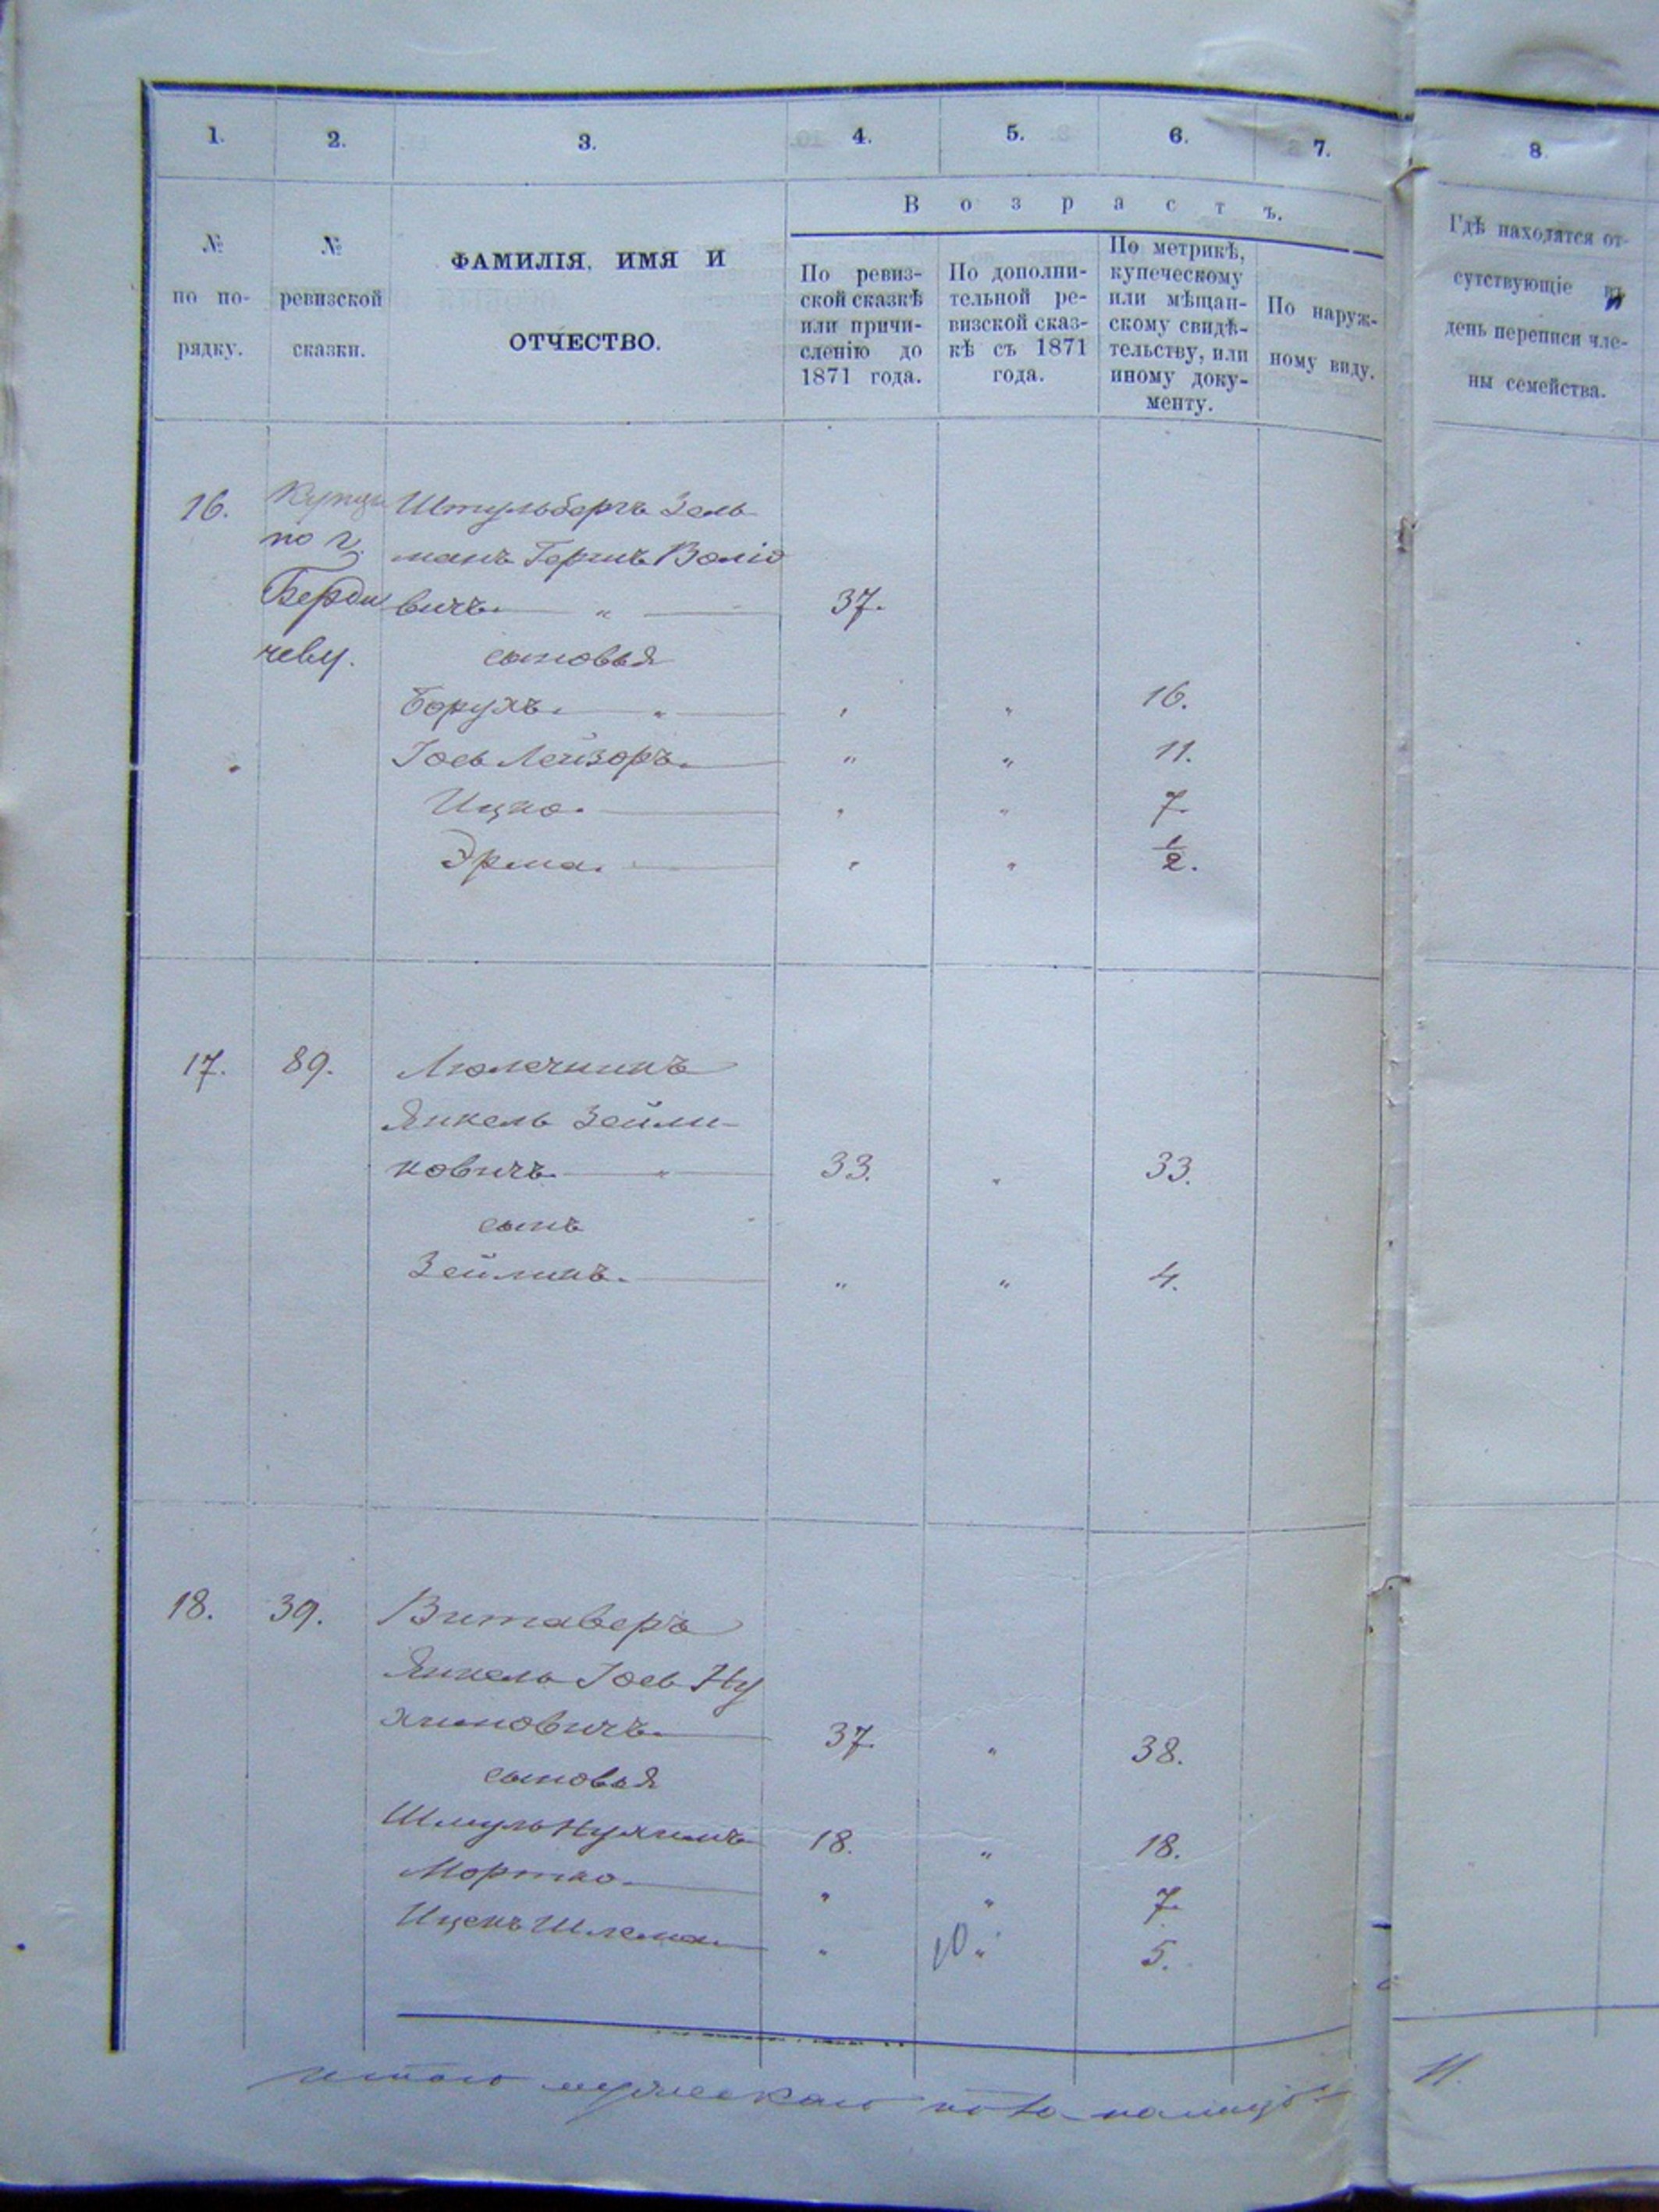 1. 2. 3. 4. 5. 6. 7. 8.
Возрастъ.
№ по порядку.
№ ревизской сказки.
ФАМИЛІЯ, ИМЯ И
ОТЧЕСТВО.
По ревиз-
ской сказкѣ
или причи-
сленію до
1871 года.
По дополни-
тельной ре-
визской сказ-
кѣ съ 1871
года.
По метрикѣ,
купеческому
или мѣщан-
скому свидѣ-
тельству, или
иному доку-
менту.
По наруж-
ному виду.
Гдѣ находятся от-
сутствующіе въ
день переписи чле-
ны семейства.
16. Купцы Штульбергъ Зель-
по г. манъ Гершъ
Берди вичъ " 37.
чеву. сыновья
Борухъ. " " " 16.
Іосъ Лейзоръ. " " 11.
Ицко. " " 7.
" " 1/2.
17. 89. Люлечникъ
Янкель Зейли-
ковичъ " 33. " 33.
сынъ
Зейликъ. " " 4.
18. 39. Витаверъ
Янкель Іосъ Ну
химовичъ. 37. " 38.
сыновья
Шмуль Нухимъ 18. " 18.
Мортко. " " 7.
Ицекъ Шлема. " 10 " 5.
итого мужескаго пола налицо 11.